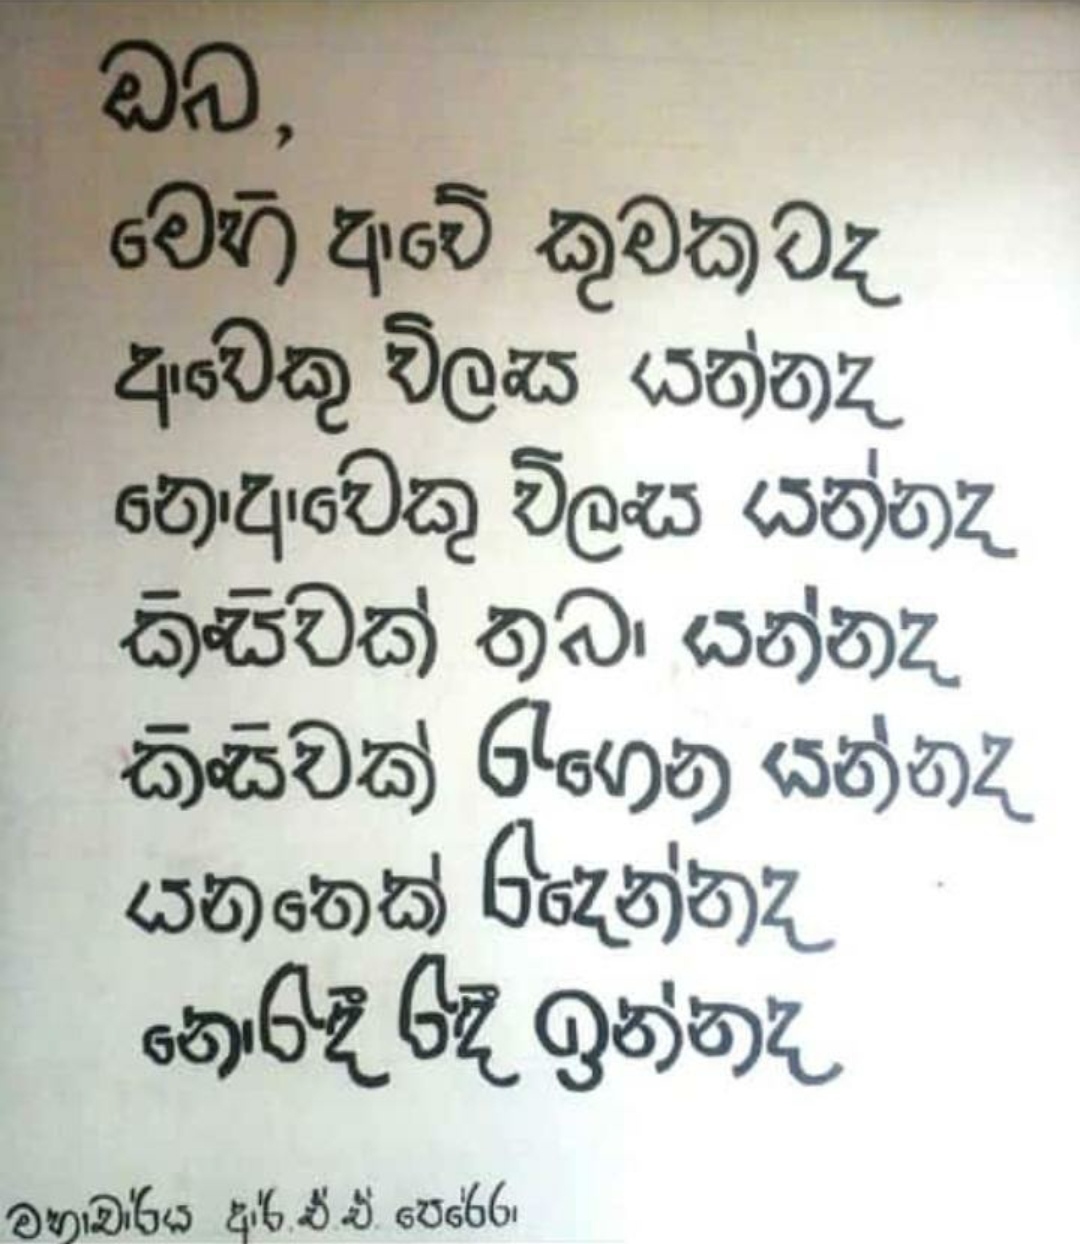 ඔබ,
මෙහි ආවේ කුමකටද
ආවෙකු විලස යන්නද
නොආවෙකු විලස යන්නද
කිසිවක් තබා යන්නද
කිසිවක් රැගෙන යන්නද
යනතෙක් රැදෙන්නද
නොරැදී රැදී ඉන්නද
මහාචාර්ය ආර්.ඒ.ඒ. පෙරේරා